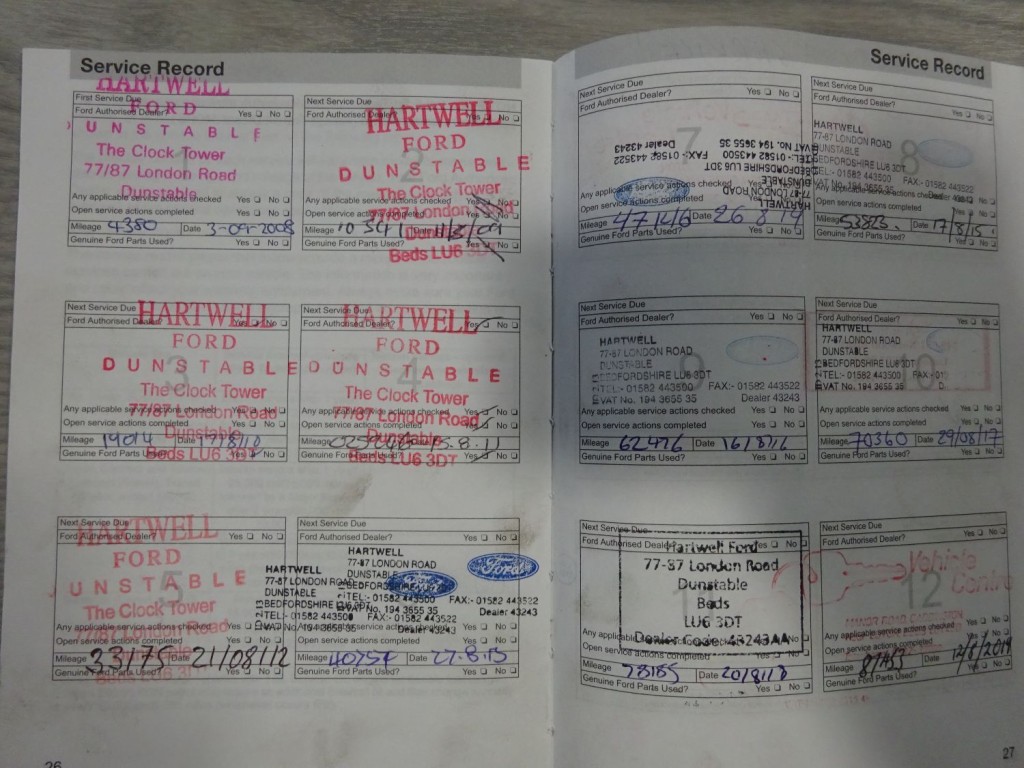 Service Record
HARTWELL
First Service Due
FORD
Ford Authorised Dealer? Yes No
UNSTABLE
The Clock Tower
77/87 London Road
Dunstable
Any applicable service actions checked Yes No
Open service actions completed Yes No
Mileage 4380 Date 3-09-2008
Genuine Ford Parts Used? Yes No
Next Service Due
HARTWELL
Ford Authorised Dealer? Yes No
FORD
2
DUNSTABLE
The Clock Tower
Any applicable service actions checked
77/87 London Road
Open service actions completed
Mileage 10341 Date
Genuine Ford Parts Used?
Beds LU6 3DT
Next Service Due
HARTWELL
Ford Authorised Dealer? Yes No
FORD
3
DUNSTABLE
The Clock Tower
77/87 London Road
Any applicable service actions checked
Open service actions completed
Dunstable
Mileage 19014 Date
Genuine Ford Parts Used?
Beds LU6 3DT
Next Service Due
HARTWELL
Ford Authorised Dealer? Yes No
FORD
4
DUNSTABLE
The Clock Tower
77/87 London Road
Any applicable service actions checked
Open service actions completed
Dunstable
Mileage Date
Genuine Ford Parts Used?
Beds LU6 3DT
Next Service Due
HARTWELL
Ford Authorised Dealer? Yes No
FORD
5
UNSTABLE
The Clock Tower
77/87 London Road
Any applicable service actions checked
Open service actions completed
Mileage 33175 Date 21/08/12
Genuine Ford Parts Used? Yes No
Next Service Due
Ford Authorised Dealer? Yes No
HARTWELL
77-87 LONDON ROAD
DUNSTABLE
BEDFORDSHIRE LU6 3DT
TEL:- 01582 443500 FAX:- 01582 443522
VAT No. 194 3655 35 Dealer 43243
Ford
HARTWELL
77-87 LONDON ROAD
DUNSTABLE
BEDFORDSHIRE LU6 3DT
TEL:- 01582 443500 FAX:- 01582 443522
VAT No. 194 3655 35 Dealer 43243
Ford
Open service actions completed Yes No
Mileage Date 27-8-13
Genuine Ford Parts Used? Yes No
26
Service Record
Next Service Due
Ford Authorised Dealer? Yes No
7
HARTWELL
77-87 LONDON ROAD
DUNSTABLE
BEDFORDSHIRE LU6 3DT
TEL:- 01582 443500 FAX:- 01582 443522
VAT No. 194 3655 35 Dealer 43243
Any applicable service actions checked
Open service actions completed
Mileage Date 26 8 14
Genuine Ford Parts Used? Yes No
Next Service Due
Ford Authorised Dealer? Yes No
8
HARTWELL
77-87 LONDON ROAD
DUNSTABLE
BEDFORDSHIRE LU6 3DT
TEL:- 01582 443500 FAX:- 01582 443522
VAT No. 194 3655 35
Any applicable service actions checked
Open service actions completed
Mileage 53823. Date 17/8/15.
Genuine Ford Parts Used? Yes No
Next Service Due
Ford Authorised Dealer? Yes No
HARTWELL
77-87 LONDON ROAD
DUNSTABLE
BEDFORDSHIRE LU6 3DT
TEL:- 01582 443500 FAX:- 01582 443522
VAT No. 194 3655 35 Dealer 43243
Any applicable service actions checked Yes No
Open service actions completed Yes No
Mileage 62476 Date 16/8/16
Genuine Ford Parts Used? Yes No
Next Service Due
Ford Authorised Dealer? Yes No
10
HARTWELL
77-87 LONDON ROAD
DUNSTABLE
BEDFORDSHIRE LU6 3DT
TEL:- 01582 443500 FAX:- 01
VAT No. 194 3655 35 D
Any applicable service actions checked Yes No
Open service actions completed Yes No
Mileage 70360 Date 29/08/17
Genuine Ford Parts Used? Yes No
Next Service Due
Ford Authorised Dealer? Yes No
Hartwell Ford
77-87 London Road
Dunstable
Beds
LU6 3DT
Dealer Code: 43243AA
Any applicable service actions checked
Open service actions completed
Mileage 78185 Date 20/8/18
Genuine Ford Parts Used? Yes No
Next Service Due
Ford Authorised Dealer?
Vehicle
Centre
12
Any applicable service actions checked
Open service actions completed
Mileage Date
Genuine Ford Parts Used? Yes No
27